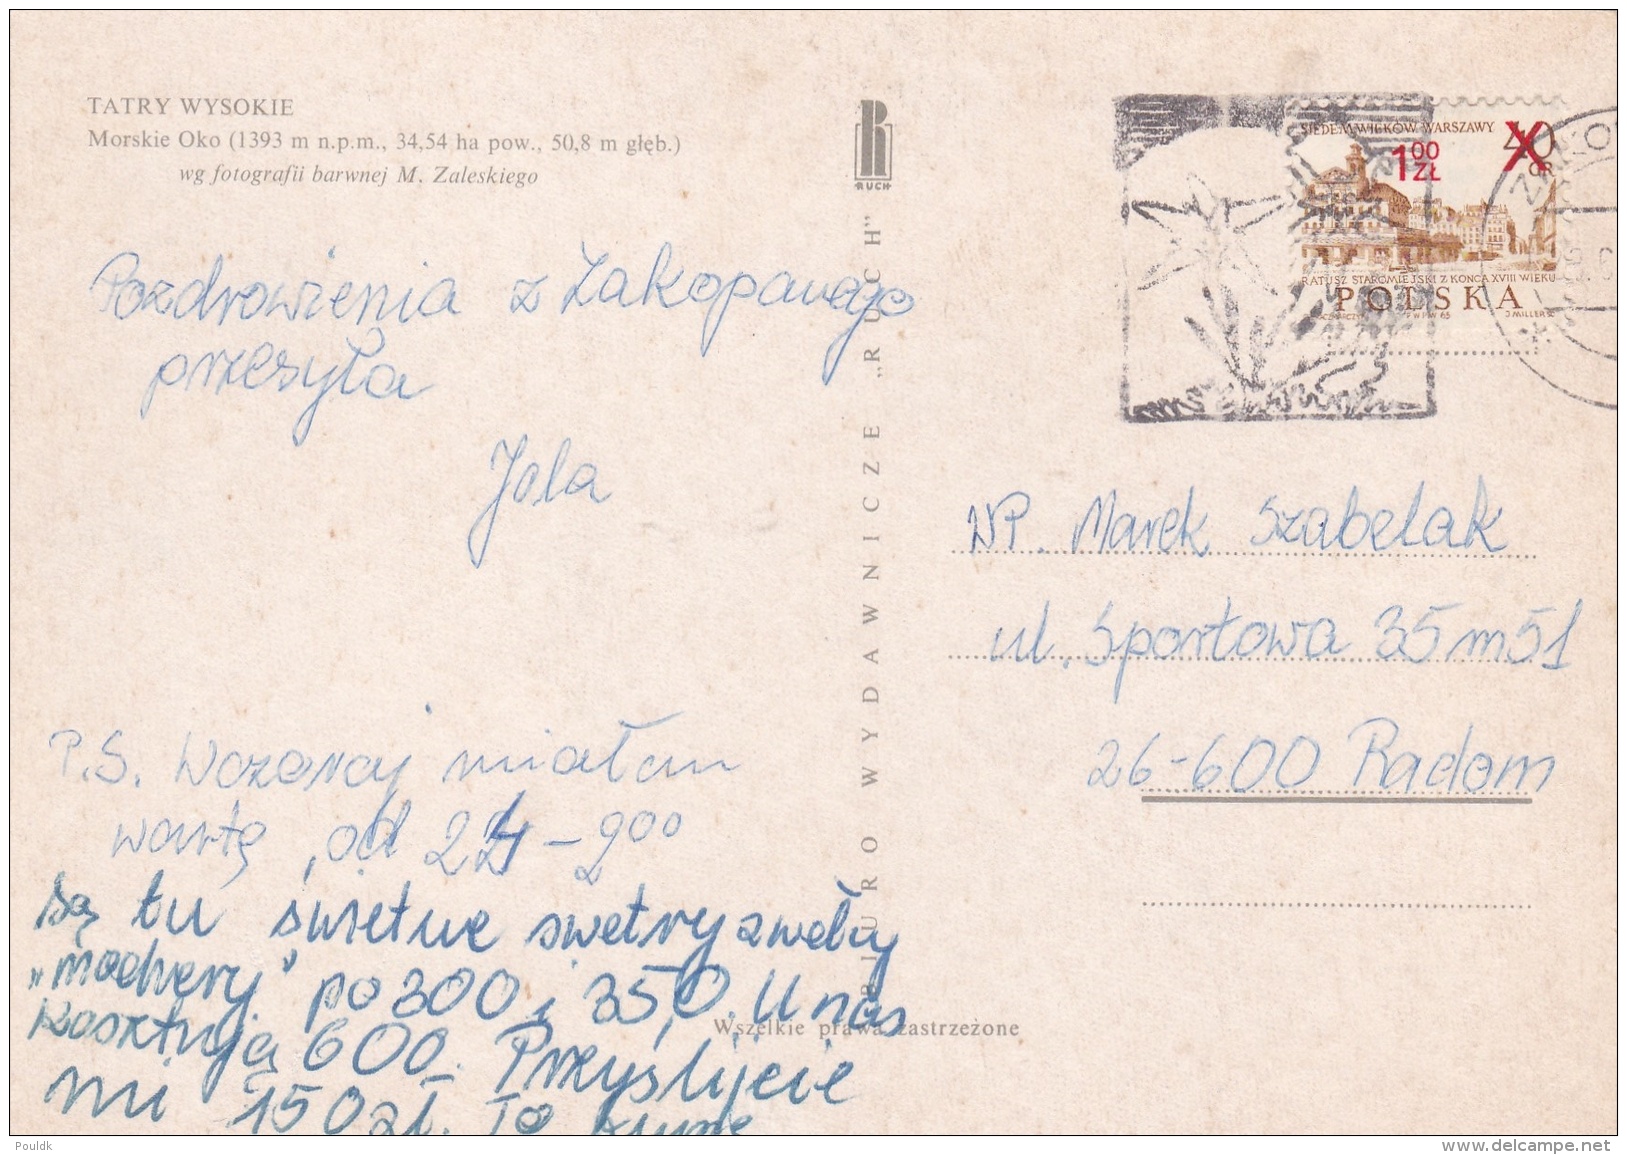 TATRY WYSOKIE
Morskie Oko (1393 m n.p.m., 34,54 ha pow., 50,8 m głęb.)
wg fotografii barwnej M. Zaleskiego
Pozdrowienia z Zakopanego
przesyła
Jola
P.S. Wczoraj miałam
wartę, od 24 - 2⁰⁰
są tu świetne swetry z wełny
„mochery" po 300 i 350. U nas
kosztują 600. Przyślijcie
mi 150 zł. To kupię
R
RUCH
BIURO WYDAWNICZE „RUCH"
Wszelkie prawa zastrzeżone
SIEDEM WIEKÓW WARSZAWY
40
GR
1⁰⁰
ZŁ
RATUSZ STAROMIEJSKI Z KONCA XVIII WIEKU
POLSKA
PWPW 65
J. MILLER
ZAKO
WP. Marek Szabelak
ul. Sportowa 35 m 51
26-600 Radom
Pouldk
www.delcampe.net